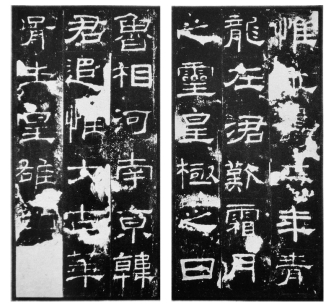 惟年青
龍在涒歎霜月
之靈皇極之日
魯相河南京韓
君追惟大古華
胥生皇雄